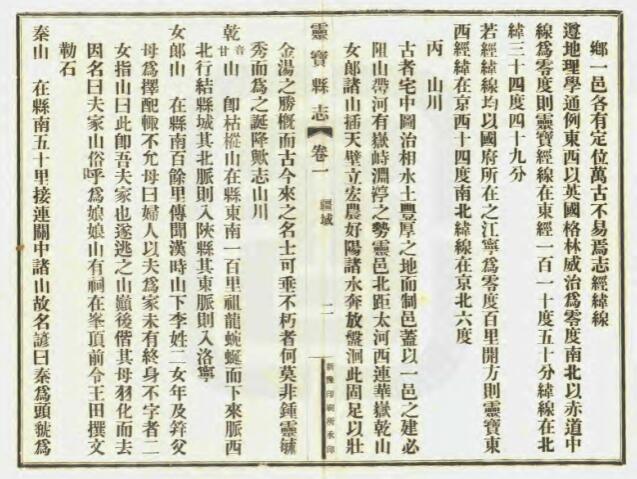 鄉一邑各有定位萬古不易焉志經緯線
遵地理學通例東西以英國格林威治為零度南北以赤道中
線為零度則靈寶經線在東經一百一十度五十分緯線在北
緯三十四度四十九分
若經緯線均以國府所在之江寧為零度百里開方則靈寶東
西經緯在京西十四度南北緯線在京北六度
丙　山川
古者宅中圖治相水土豐厚之地而制邑蓋以一邑之建必
阻山帶河有嶽峙淵渟之勢靈邑北距太河西連華嶽乾山
女郎諸山插天壁立宏農好陽諸水奔放盤洄此固足以壯
靈寶縣志　卷一　疆域　二　新豫印刷所承印
金湯之勝概而古今來之名士可垂不朽者何莫非鍾靈毓
秀而為之誕降歟志山川
乾音甘山　卽枯樅山在縣東南一百里祖龍蜿蜒而下來脈西
北行結縣城其北脈則入陝縣其東脈則入洛寧
女郎山　在縣南百餘里傳聞漢時山下李姓二女年及筓父
母為擇配輙不允母曰婦人以夫為家未有終身不字者二
女指山曰此卽吾夫家也遂逃之山巔後偕其母羽化而去
因名曰夫家山俗呼為娘娘山有祠在峯頂前令王田撰文
勒石
秦山　在縣南五十里接連關中諸山故名諺曰秦為頭虢為